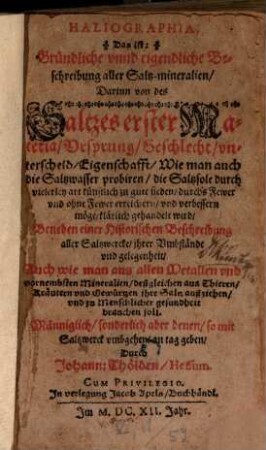 HALIOGRAPHIA,
Das ist:
Gründliche vnnd eigendliche Be-
schreibung aller Saltz-mineralien/
Darinn von des
Saltzes erster Ma-
teria/ Vrsprung/ Geschlecht/ vn-
terscheid/ Eigenschafft/ Wie man auch
die Saltzwasser probiren/ die Saltzsole durch
vielerley art künstlich zu gut sieden/ durchs Fewer
vnd ohne Fewer erreichern/ vnd verbessern
möge/ klärlich gehandelt wird/
Beneben einer Historischen Beschreibung
aller Saltzwercke/ ihrer Vmbstände
vnd gelegenheit/
Auch wie man aus allen Metallen vnd
vornembsten Mineralien/ deßgleichen aus Thieren/
Kräutern vnd Gewürtzen ihre Saltz ausziehen/
vnd zu Menschlicher gesundheit
brauchen soll.
Männiglich/ sonderlich aber denen/ so mit
Saltzwerck vmbgehen/ an tag geben/
Durch
Johann: Thölden/ Hessum.
CUM PRIVILEGIO.
In verlegung Jacob Apels/ Buchhändl.
Im M. DC. XII. Jahr.